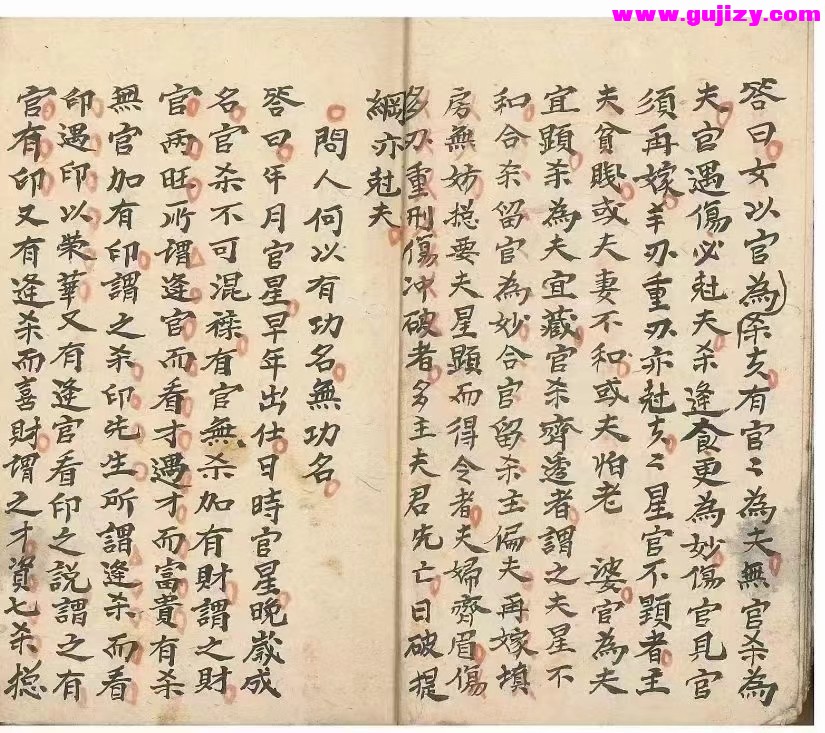 www.gujizy.com
答曰女以官為夫有官〻為夫無官杀為
夫官遇傷必尅夫杀逢食更為妙傷官見官
須再嫁羊刃重刃亦尅夫〻星官不顕者主
夫貧賎或夫妻不和或夫怕老婆官為夫
宜顕杀為夫宜藏官杀齊透者謂之夫星不
和合杀留官為妙合官留杀主偏夫再嫁填
房無妨揔要夫星顕而得令者夫婦齊眉傷
多刃重刑傷冲破者多主夫君死亡日破提
綱亦尅夫
問人何以有功名無功名
答曰年月官星早年出仕日時官星晚歲成
名官杀不可混襍有官無杀加有財謂之財
官两旺所謂逢官而看才遇才而富貴有杀
無官加有印謂之杀印先生所謂逢杀而看
印遇印以荣華又有逢官看印之説謂之有
官有印又有逢杀而喜財謂之才資七杀揔